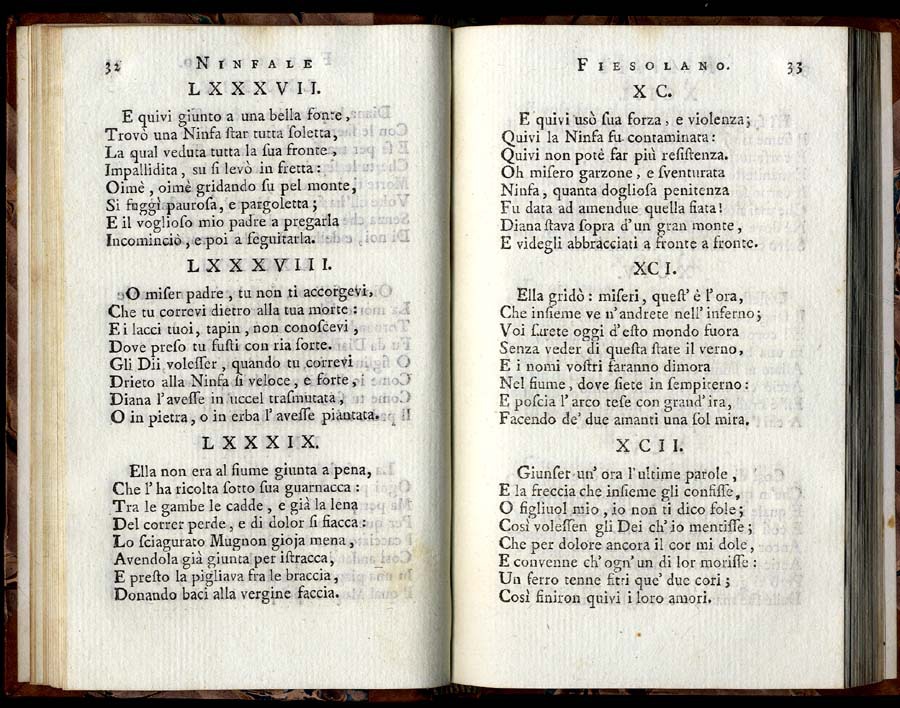 32 NINFALE
LXXXVII.
E quivi giunto a una bella fonte,
Trovò una Ninfa ſtar tutta ſoletta,
La qual veduta tutta la ſua fronte,
Impallidita, su ſi levò in fretta:
Oimè, oimè gridando ſu pel monte,
Si fuggì pauroſa, e pargoletta;
E il voglioſo mio padre a pregarla
Incominciò, e poi a ſeguitarla.
LXXXVIII.
O miſer padre, tu non ti accorgevi,
Che tu correvi dietro alla tua morte:
E i lacci tuoi, tapin, non conoſcevi,
Dove preſo tu fuſti con ria ſorte.
Gli Dii voleſſer, quando tu correvi
Drieto alla Ninfa ſi veloce, e forte,
Diana l'aveſſe in uccel traſmutata,
O in pietra, o in erba l'aveſſe piantata.
LXXXIX.
Ella non era al fiume giunta a pena,
Che l'ha ricolta ſotto ſua guarnacca:
Tra le gambe le cadde, e già la lena
Del correr perde, e di dolor ſi fiacca:
Lo ſciagurato Mugnon gioja mena,
Avendola già giunta per iſtracca,
E preſto la pigliava fra le braccia,
Donando baci alla vergine faccia.
FIESOLANO. 33
XC.
E quivi usò ſua forza, e violenza;
Quivi la Ninfa fu contaminata:
Quivi non potè far più reſiſtenza.
Oh miſero garzone, e ſventurata
Ninfa, quanta doglioſa penitenza
Fu data ad amendue quella fiata!
Diana ſtava ſopra d'un gran monte,
E videgli abbracciati a fronte a fronte.
XCI.
Ella gridò: miſeri, queſt' è l'ora,
Che inſieme ve n'andrete nell'inferno;
Voi ſarete oggi d'eſto mondo fuora
Senza veder di queſta ſtate il verno,
E i nomi voſtri faranno dimora
Nel fiume, dove ſiete in ſempiterno:
E poſcia l'arco teſe con grand'ira,
Facendo de' due amanti una ſol mira.
XCII.
Giunſer un' ora l'ultime parole,
E la freccia che inſieme gli confiſſe,
O figliuol mio, io non ti dico fole;
Così voleſſen gli Dei ch'io mentiſſe;
Che per dolore ancora il cor mi dole,
E convenne ch'ogn'un di lor moriſſe:
Un ferro tenne fitti que' due cori;
Così finiron quivi i loro amori.